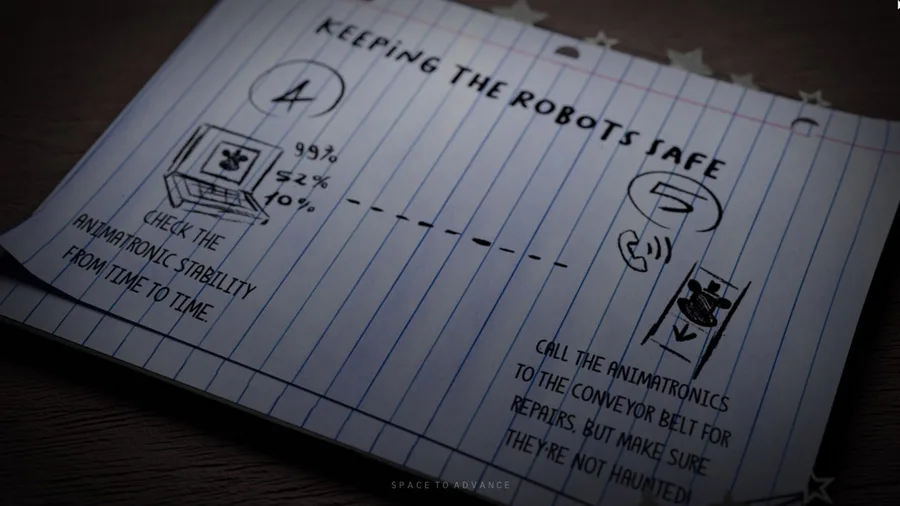 KEEPING THE ROBOTS SAFE
4
99%
52%
10%
CHECK THE
ANIMATRONIC STABILITY
FROM TIME TO TIME.
5
CALL THE ANIMATRONICS
TO THE CONVEYOR BELT FOR
REPAIRS, BUT MAKE SURE
THEY'RE NOT HAUNTED!
SPACE TO ADVANCE